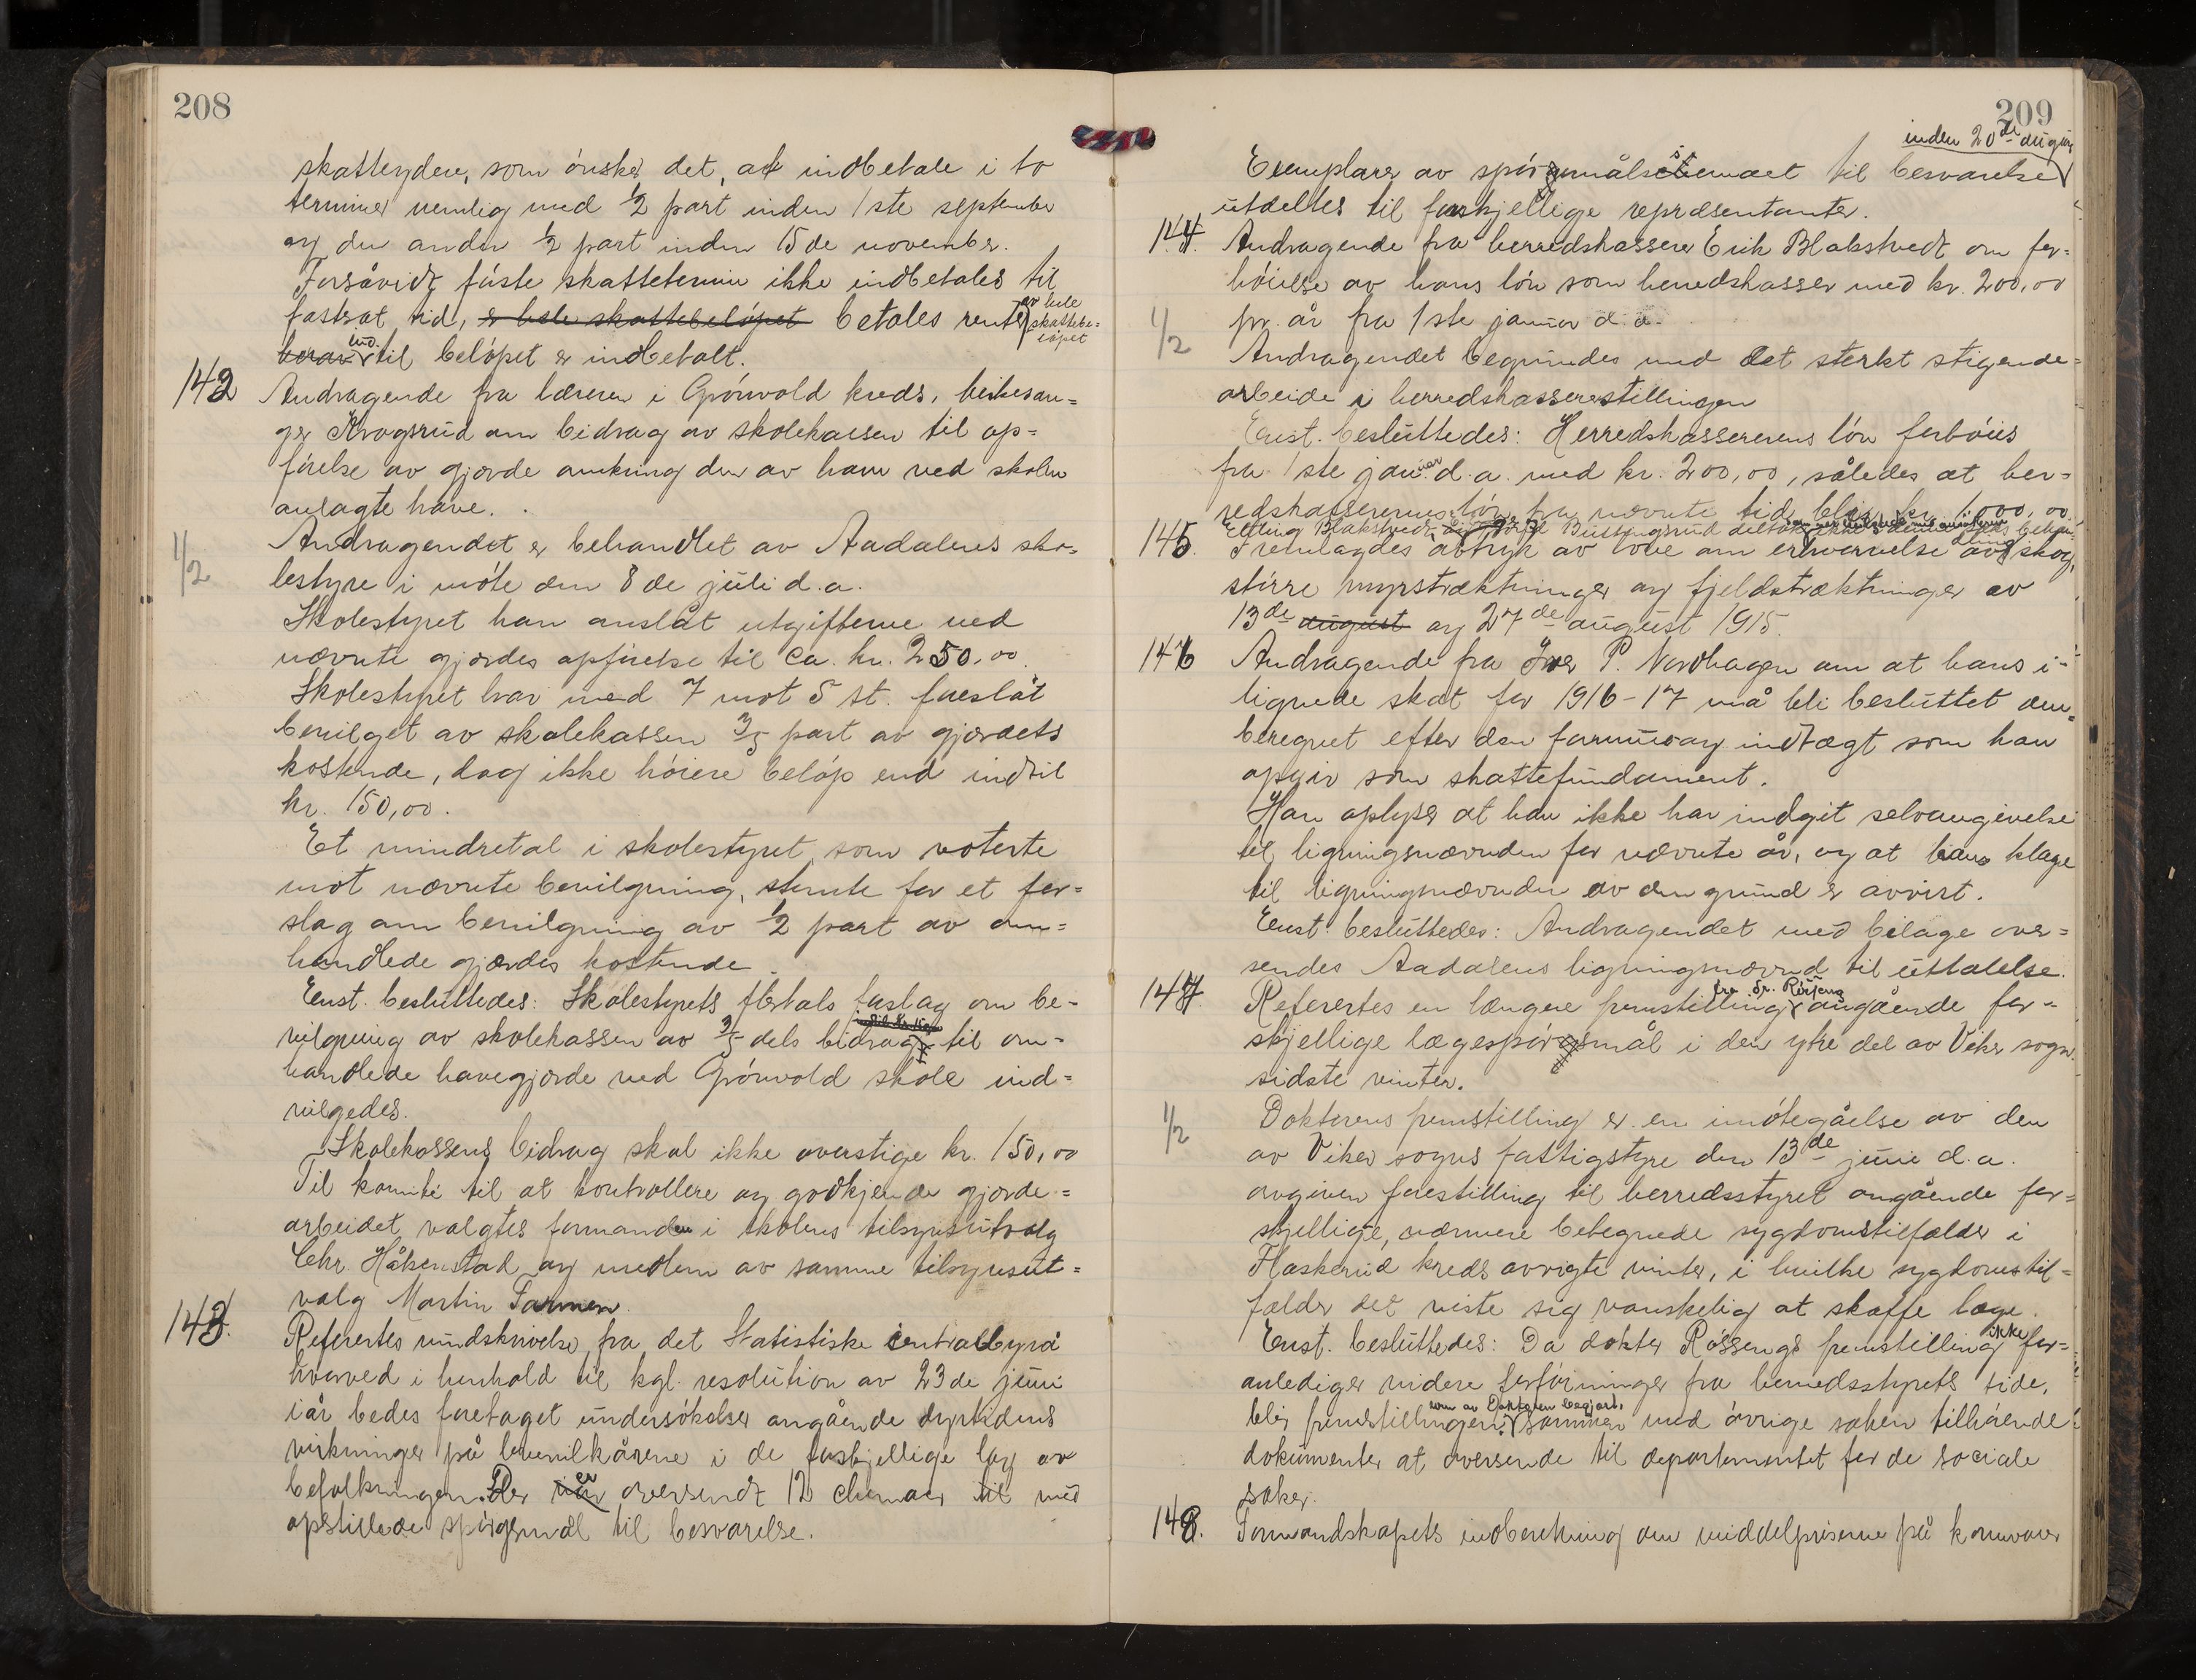 208
skatteydere, som ønsker det, at indbetale i to
terminer nemlig med 1/2 part inden 1ste september
og den anden 1/2 part inden 15de november.
Forsåvidt første skattetermin ikke indbetales til
fastsat tid, er hele skattebeløpet betales renter av hele skattebe=
løpet
herav ind til beløpet er indbetalt.
142 Andragende fra læreren i Grønvold kreds, kirkesan=
ger Kragsrud om bidrag av skolekassen til op=
førelse av gjærde omkring den av ham ved skolen
anlagte have.
1/2 Andragendet er behandlet av Aadalens sko=
lestyre i møte den 8de juli d.a.
Skolestyret har anslåt utgifterne ved
nævnte gjærdes opførelse til ca. kr. 250,00.
Skolestyret har med 7 mot 5 st. foreslåt
bevilget av skolekassen 3/5 part av gjærdets
kostende, dog ikke høiere beløp end indtil
kr. 150,00.
Et mindretal i skolestyret som voterte
mot nævnte bevilgning, stemte for et for=
slag om bevilgning av 1/2 part av om=
handlede gjærdes kostende.
Enst. besluttedes: Skolestyrets flertals forslag om be=
vilgning av skolekassen av 3/5 dels bidrag til om=
handlede havegjærde ved Grønvold skole ind=
vilgedes.
Skolekassens bidrag skal ikke overstige kr. 150,00
Til komite til at kontrollere og godkjende gjærde=
arbeidet valgtes formanden i skolens tilsynsutvalg
Chr. Håkenstad og medlem av samme tilsynsut=
valg Martin Tarmen.
143. Referertes rundskrivelse fra det Statistiske centralbyrå
hvorved i henhold til kgl. resolution av 23de juni
iår bedes foretaget undersøkelser angående dyrtidens
virkninger på levevilkårene i de forskjellige lag av
befolkningen. Der er oversendt 12 chemaer til med
opstillede spørgsmål til besvarelse.
209
inden 20de august
Exemplarer av spørsmålsskemaet til besvarelse
utdeltes til forskjellige repræsentanter.
144. Andragende fra herredskasserer Erik Blakstvedt om for=
høielse av hans løn som herredskasser med kr. 200,00
1/2 pr. år fra 1ste januar d.a.
Andragendet begrundes med det sterkt stigende
arbeide i herredskassererstillingen
Enst. besluttedes: Herredskassererens løn forhøies
fra 1ste januar d.a. med kr. 200,00, således at her=
redskassererens løn fra nævnte tid blir kr. 1000,00.
Elling Blakstvedt Bustingsrud deltok ikke
145. Fremlagdes avtryk av love om erhvervelse av skog,
større myrstrækninger og fjeldstrækninger av
13de august og 27de august 1915.
146 Andragende fra Iver P. Nordhagen om at hans i=
lignede skat for 1916-17 må bli besluttet om=
beregnet efter den formue og indtægt som han
opgir som skattefundament.
Han oplyser at han ikke har indgit selvangivelse
til ligningsnævnden for nævnte år, og at hans klage
til ligningsnævnden av den grund er avvist.
Enst. besluttedes: Andragendet med bilage over=
sendes Aadalens ligningsnævnd til uttalelse.
147. Referertes en længere fremstilling fra Dr. Røsseng angående for=
skjellige lægespørsmål i den ytre del av Viker sogn
sidste vinter.
1/2 Doktorens fremstilling er en imøtegåelse av den
av Viker sogns fattigstyre den 13de juni d.a.
avgiven forestilling til herredsstyret angående for=
skjellige, nærmere betegnede sygdomstilfælder i
Flaskerud kreds avvigte vinter, i hvilke sygdomstil=
fælder det viste sig vanskelig at skaffe læge.
Enst. besluttedes: Da doktor Røssengs fremstilling ikke for=
anlediger videre forføininger fra herredsstyrets side,
blir fremstillingen, som av Doktoren begjært, sammen med øvrige saken tilhørende
dokumenter at oversende til departementet for de sociale
saker.
148. Formandskapets indberetning om middelpriserne på kornvarer